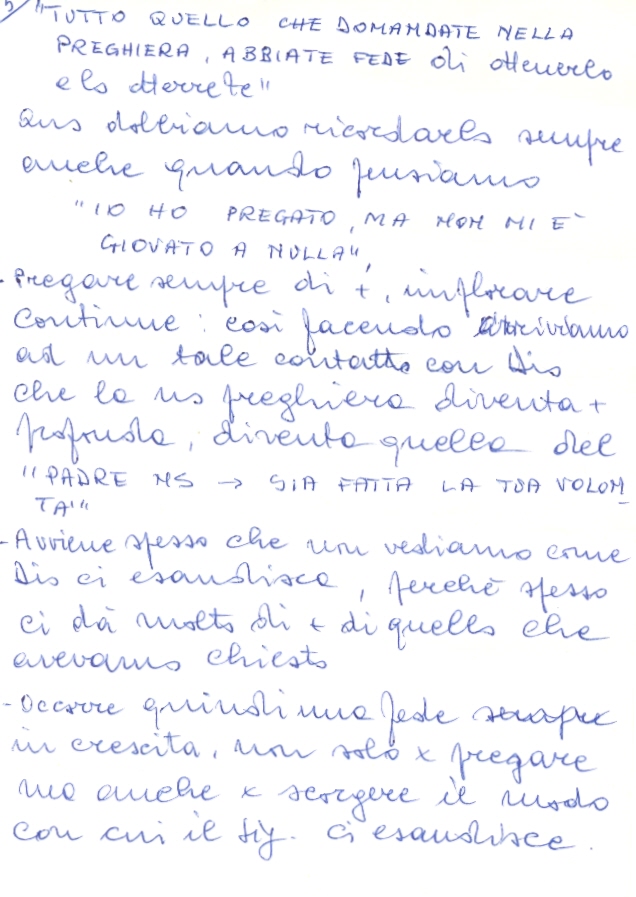 "TUTTO QUELLO CHE DOMANDATE NELLA
PREGHIERA, ABBIATE FEDE di ottenerlo
e lo otterrete"
Qns dobbiamo ricordarlo sempre
anche quando pensiamo
"IO HO PREGATO, MA NON MI E'
GIOVATO A NULLA",
- Pregare sempre di +, implorare
continue: così facendo arriviamo
ad un tale contatto con Dio
che la ns preghiera diventa +
profonda, diventa quella del
"PADRE NS → SIA FATTA LA TUA VOLON
TA'"
- Avviene spesso che non vediamo come
Dio ci esaudisca, perchè spesso
ci dà molto di + di quello che
avevamo chiesto
- Occorre quindi una fede sempre
in crescita, non solo x pregare
ma anche x scorgere il modo
con cui il Sig. ci esaudisce.